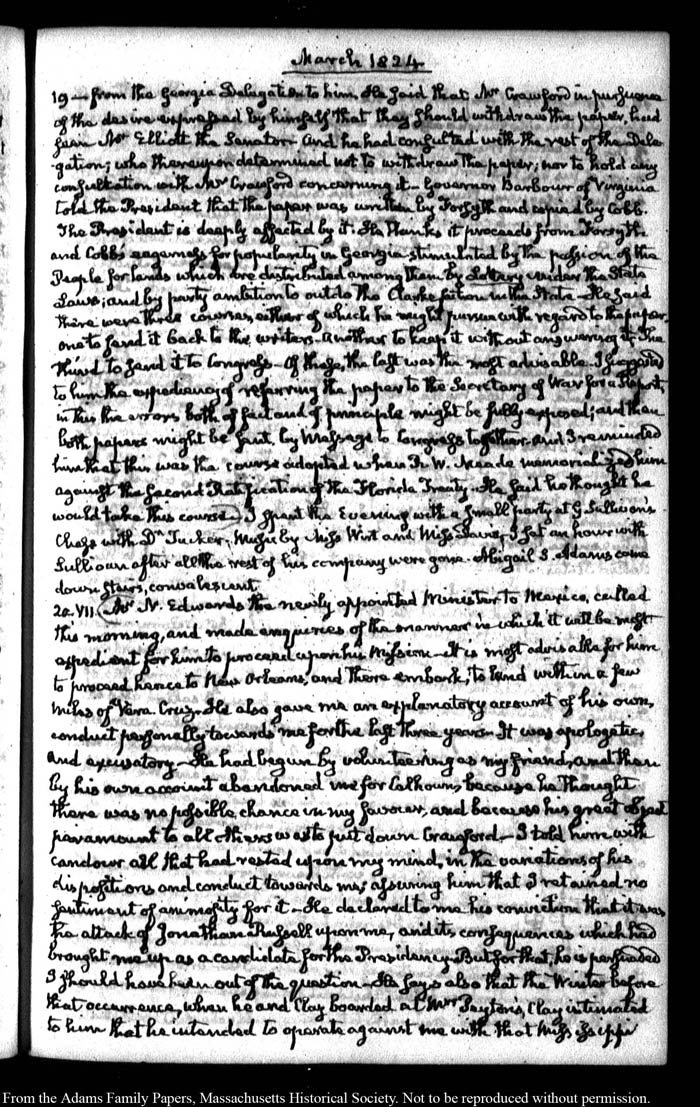 March 1824
19 — from the Georgia Delegation to him. He said that Mr Crawford in pursuance
of the desire expressed by himself that they should withdraw the paper, had
seen Mr Elliott the Senator. And he had consulted with the rest of the Dele
-gation; who thereupon determined not to withdraw the paper; nor to hold any
consultation with Mr Crawford concerning it — Governor Barbour of Virginia
told the President that the paper was written by Forsyth and copied by Cobb.
The President is deeply affected by it. He thinks it proceeds from Forsyth
and Cobb's eagerness for popularity in Georgia stimulated by the passion of the
People for lands which are distributed among them by Lottery under the State
Laws; and by party ambition to outdo the Clarke faction in the State — He said
there were three courses, either of which he might pursue with regard to the paper,
one to send it back to the writers. Another to keep it without answering it. The
third to send it to Congress — Of these, the last was the most advisable. I suggested
to him the expediency of referring the paper to the Secretary of War for a Report;
in this the errors both of fact and of principle might be fully exposed; and then
both papers might be sent, by Message to Congress together. And I reminded
him that this was the course adopted when R. W. Meade memorialized him
against the second Ratification of the Florida Treaty — He said he thought he
would take this course) I spent the Evening with a small party at G. Sullivan's
Chess with Dr Tucker; Music by Miss Wirt and Miss I sat an hour with
Sullivan after all the rest of his company were gone. Abigail S. Adams came
down stairs, convalescent.
20. VII. (Mr N. Edwards the newly appointed Minister to Mexico, called
this morning, and made enquiries of the manner in which it will be most
expedient for him to proceed upon his Mission — It is most advisable for him
to proceed hence to New Orleans, and there embark, to land within a few
miles of Vera Cruz — He also gave me an explanatory account of his own,
conduct personally towards me for the last three years. It was apologetic,
and excusatory — He had begun by volunteering as my friend, and then
by his own account abandoned me for Calhoun, because he thought
there was no possible chance in my favour, and because his great object
paramount to all others was to put down Crawford — I told him with
candour all that had rested upon my mind, in the variations of his
dispositions and conduct towards me; assuring him that I retained no
sentiment of animosity for it — He declared to me his conviction that it was
the attack of Jonathan Russell upon me, and its consequences which had
brought me up as a candidate for the Presidency. But for that, he is persuaded
I should have been out of the question — He says also that the Winter before
that occurrence, when he and Clay boarded at Mrs Peyton's, Clay intimated
to him that he intended to operate against me with that Mississippi
From the Adams Family Papers, Massachusetts Historical Society. Not to be reproduced without permission.